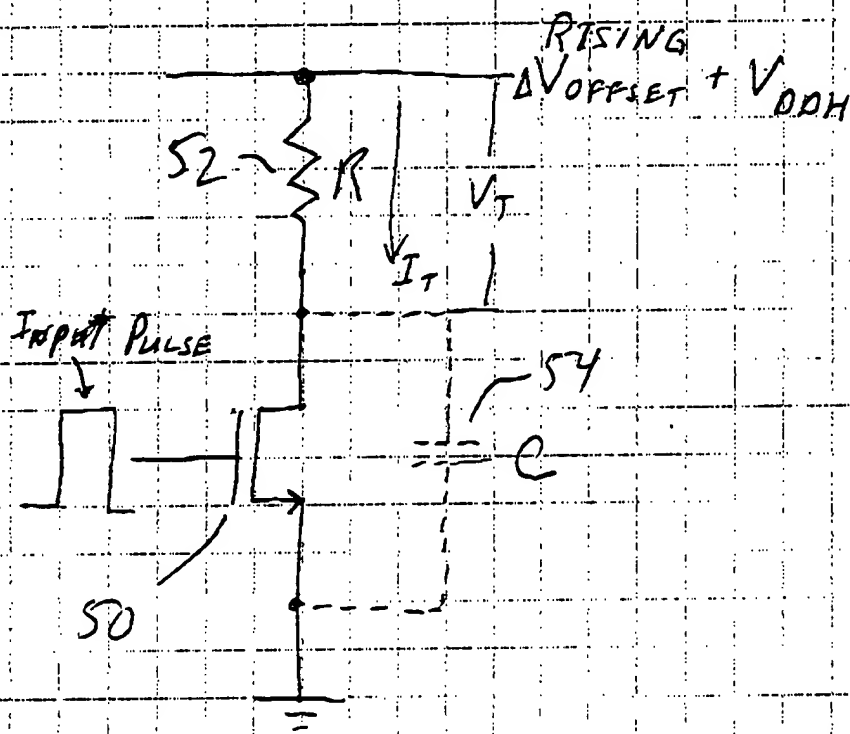 RISING
ΔV OFFSET + V DDH
52
R
V T
I T
INPUT PULSE
54
C
50